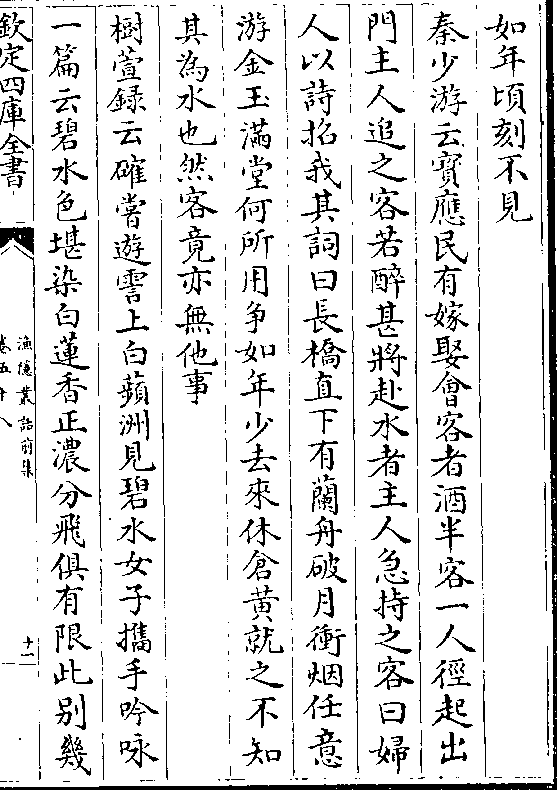 如年頃刻不見
秦少游云寳應民有嫁娶會客者酒半客一人徑起出
門主人追之客若醉甚將赴水者主人急持之客曰婦
人以詩招我其詞曰長橋直下有蘭舟破月衝烟任意
游金玉滿堂何所用争如年少去來休倉黄就之不知
其為水也然客竟亦無他事
樹萱録云確嘗遊霅上白蘋洲見碧水女子攜手吟咏
一篇云碧水色堪染白蓮香正濃分飛俱有限此别幾
欽定四庫全書
漁隱叢話前集
卷五十八
十二